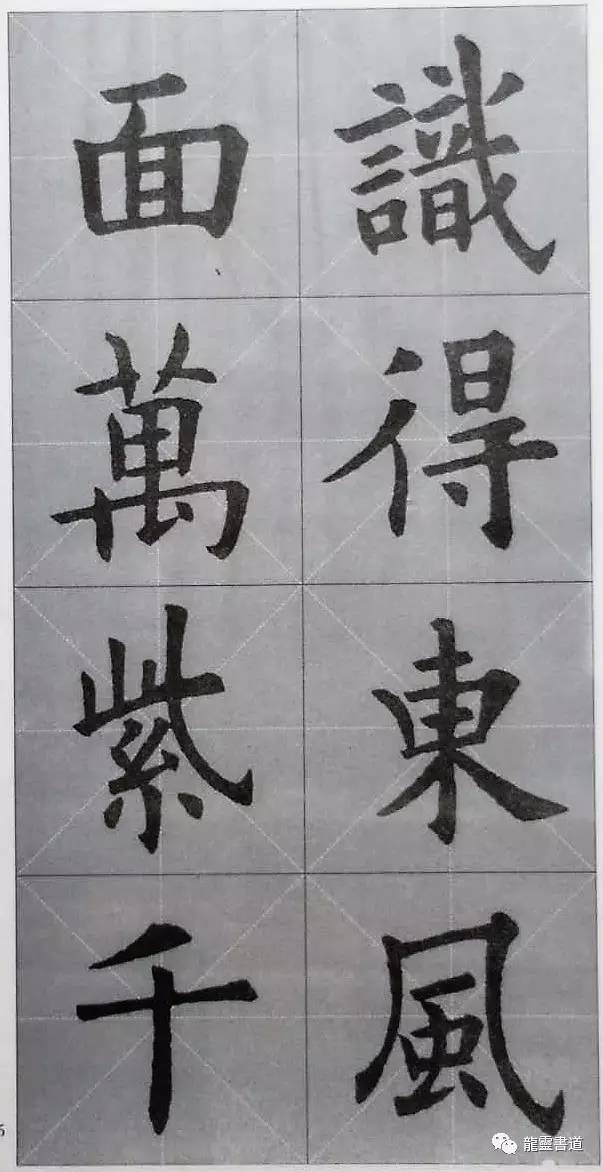 識得東風
面萬紫千
龍靈書道